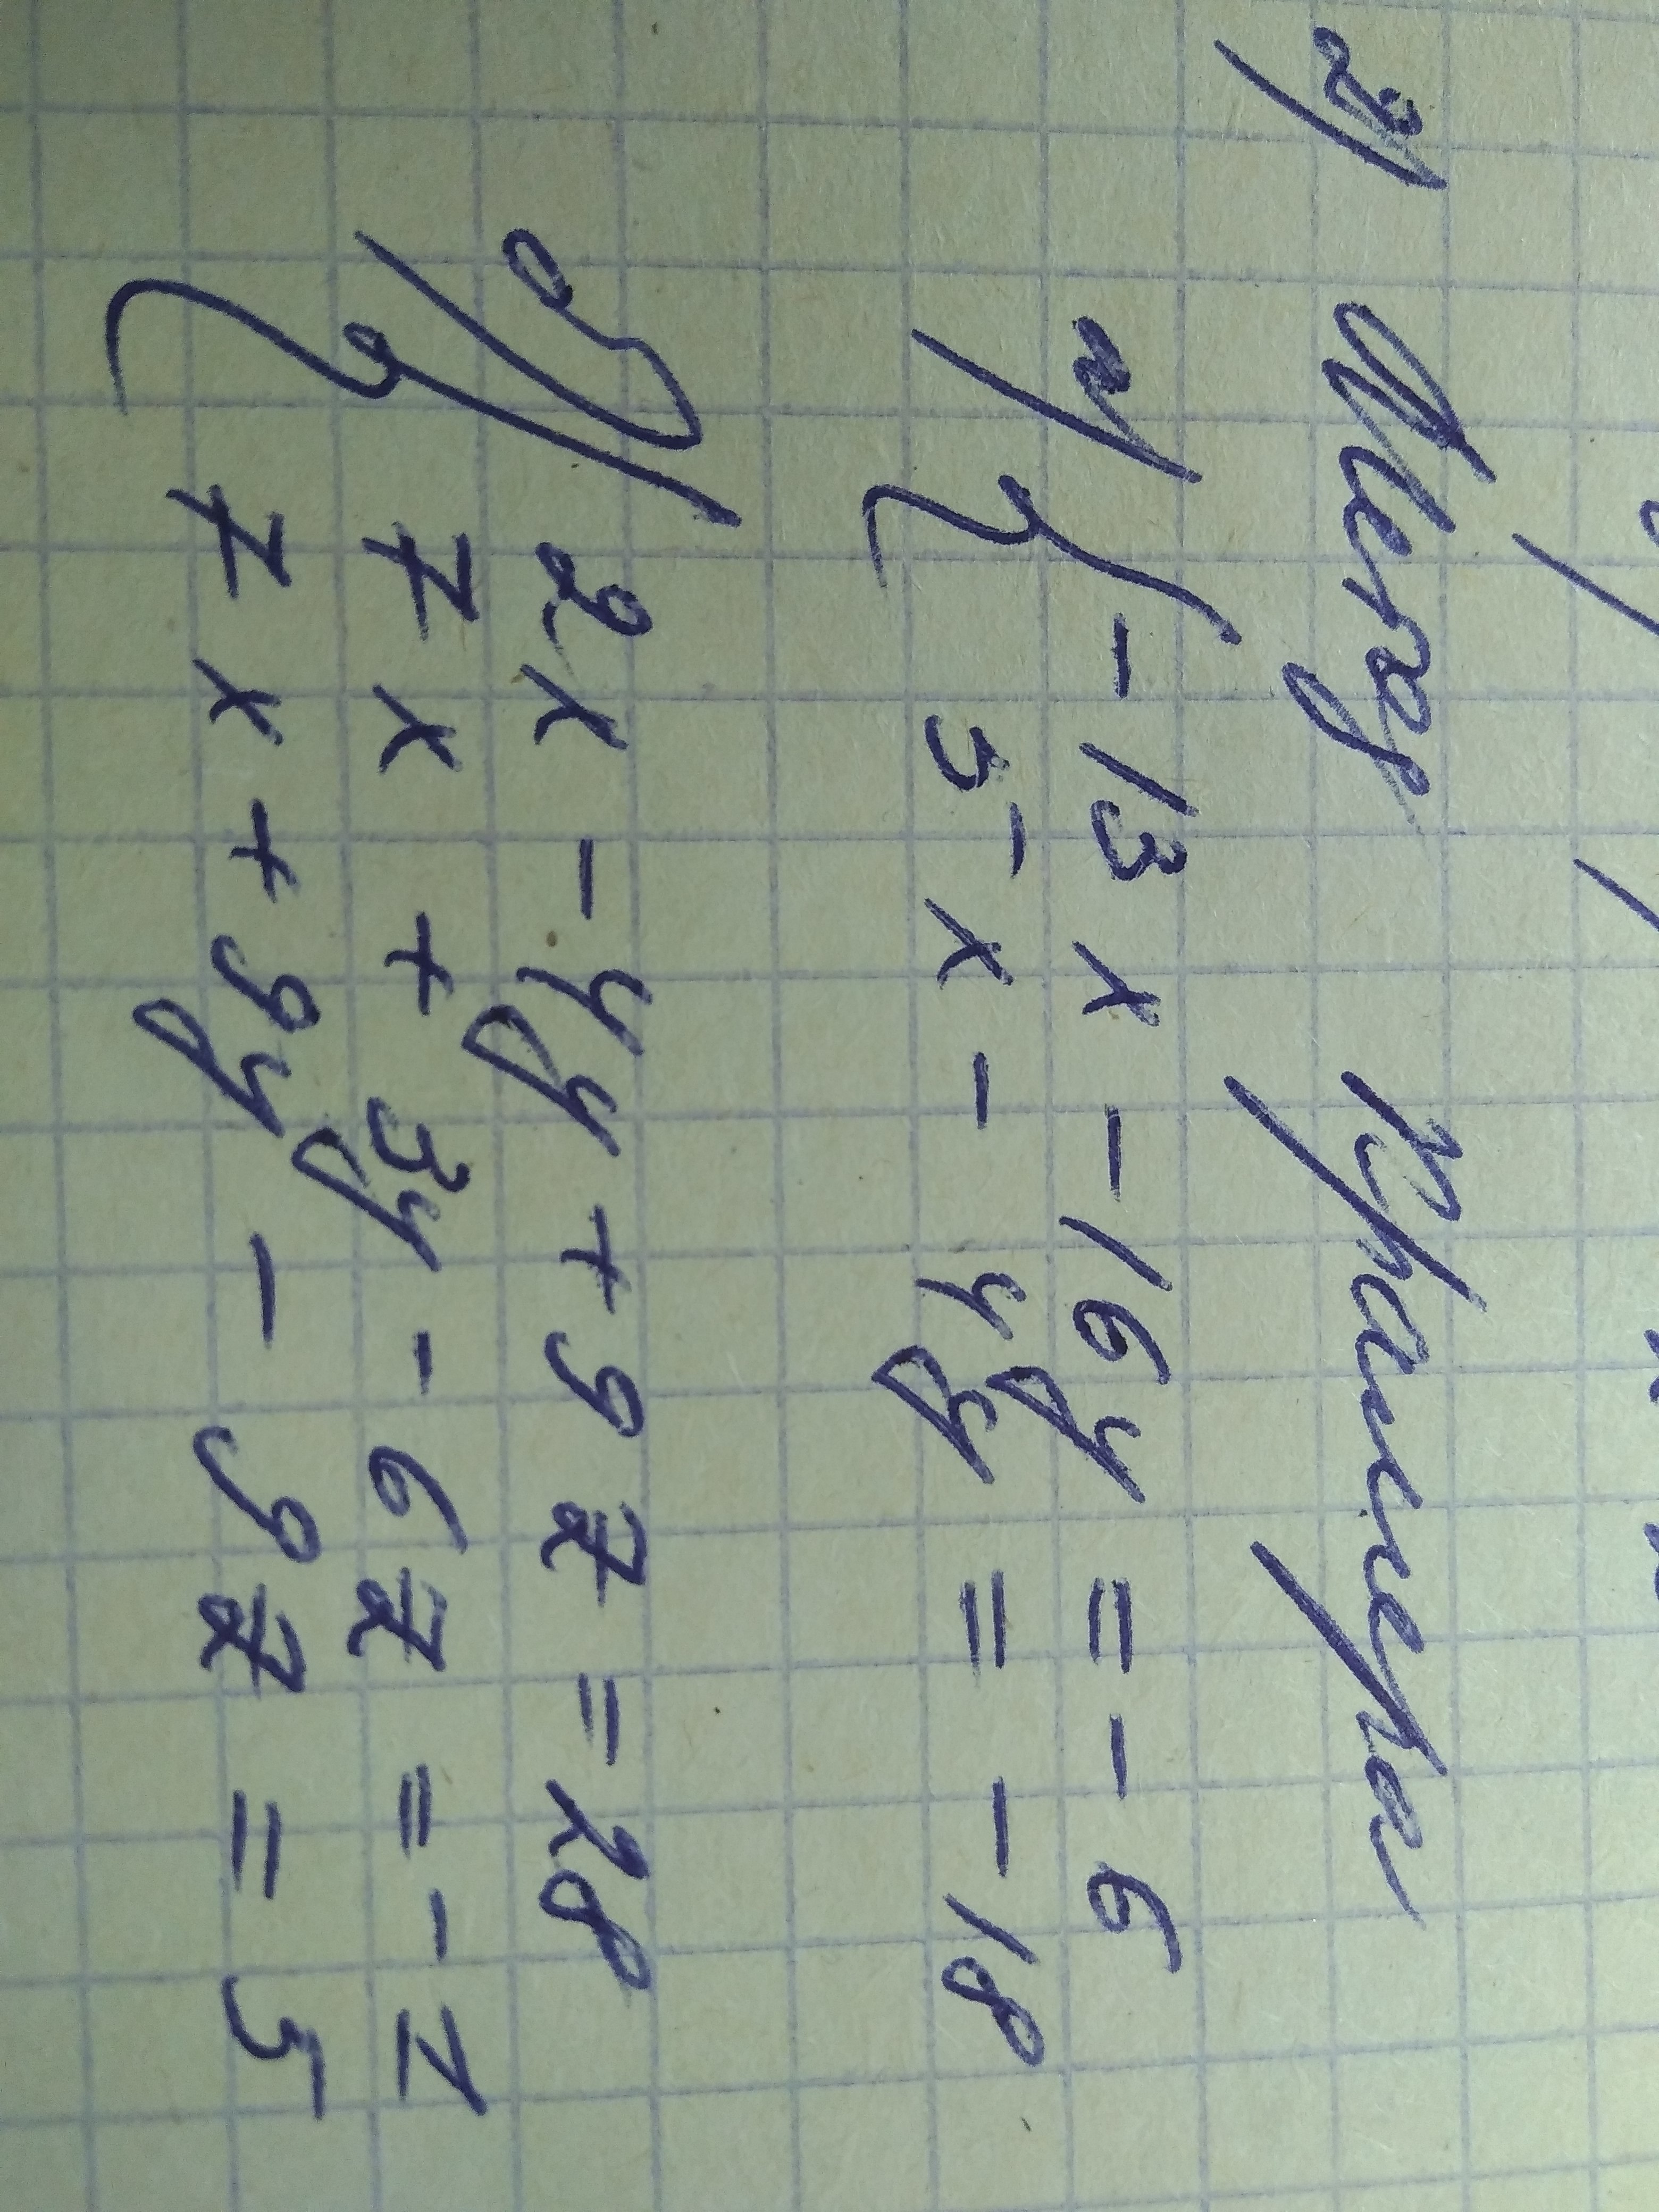 2) Метод Крамера
а) { -13x - 16y = -6
5x - 4y = -18
б) { 2x - 4y + 9z = 28
7x + 3y - 6z = -7
7x + 9y - 9z = 5